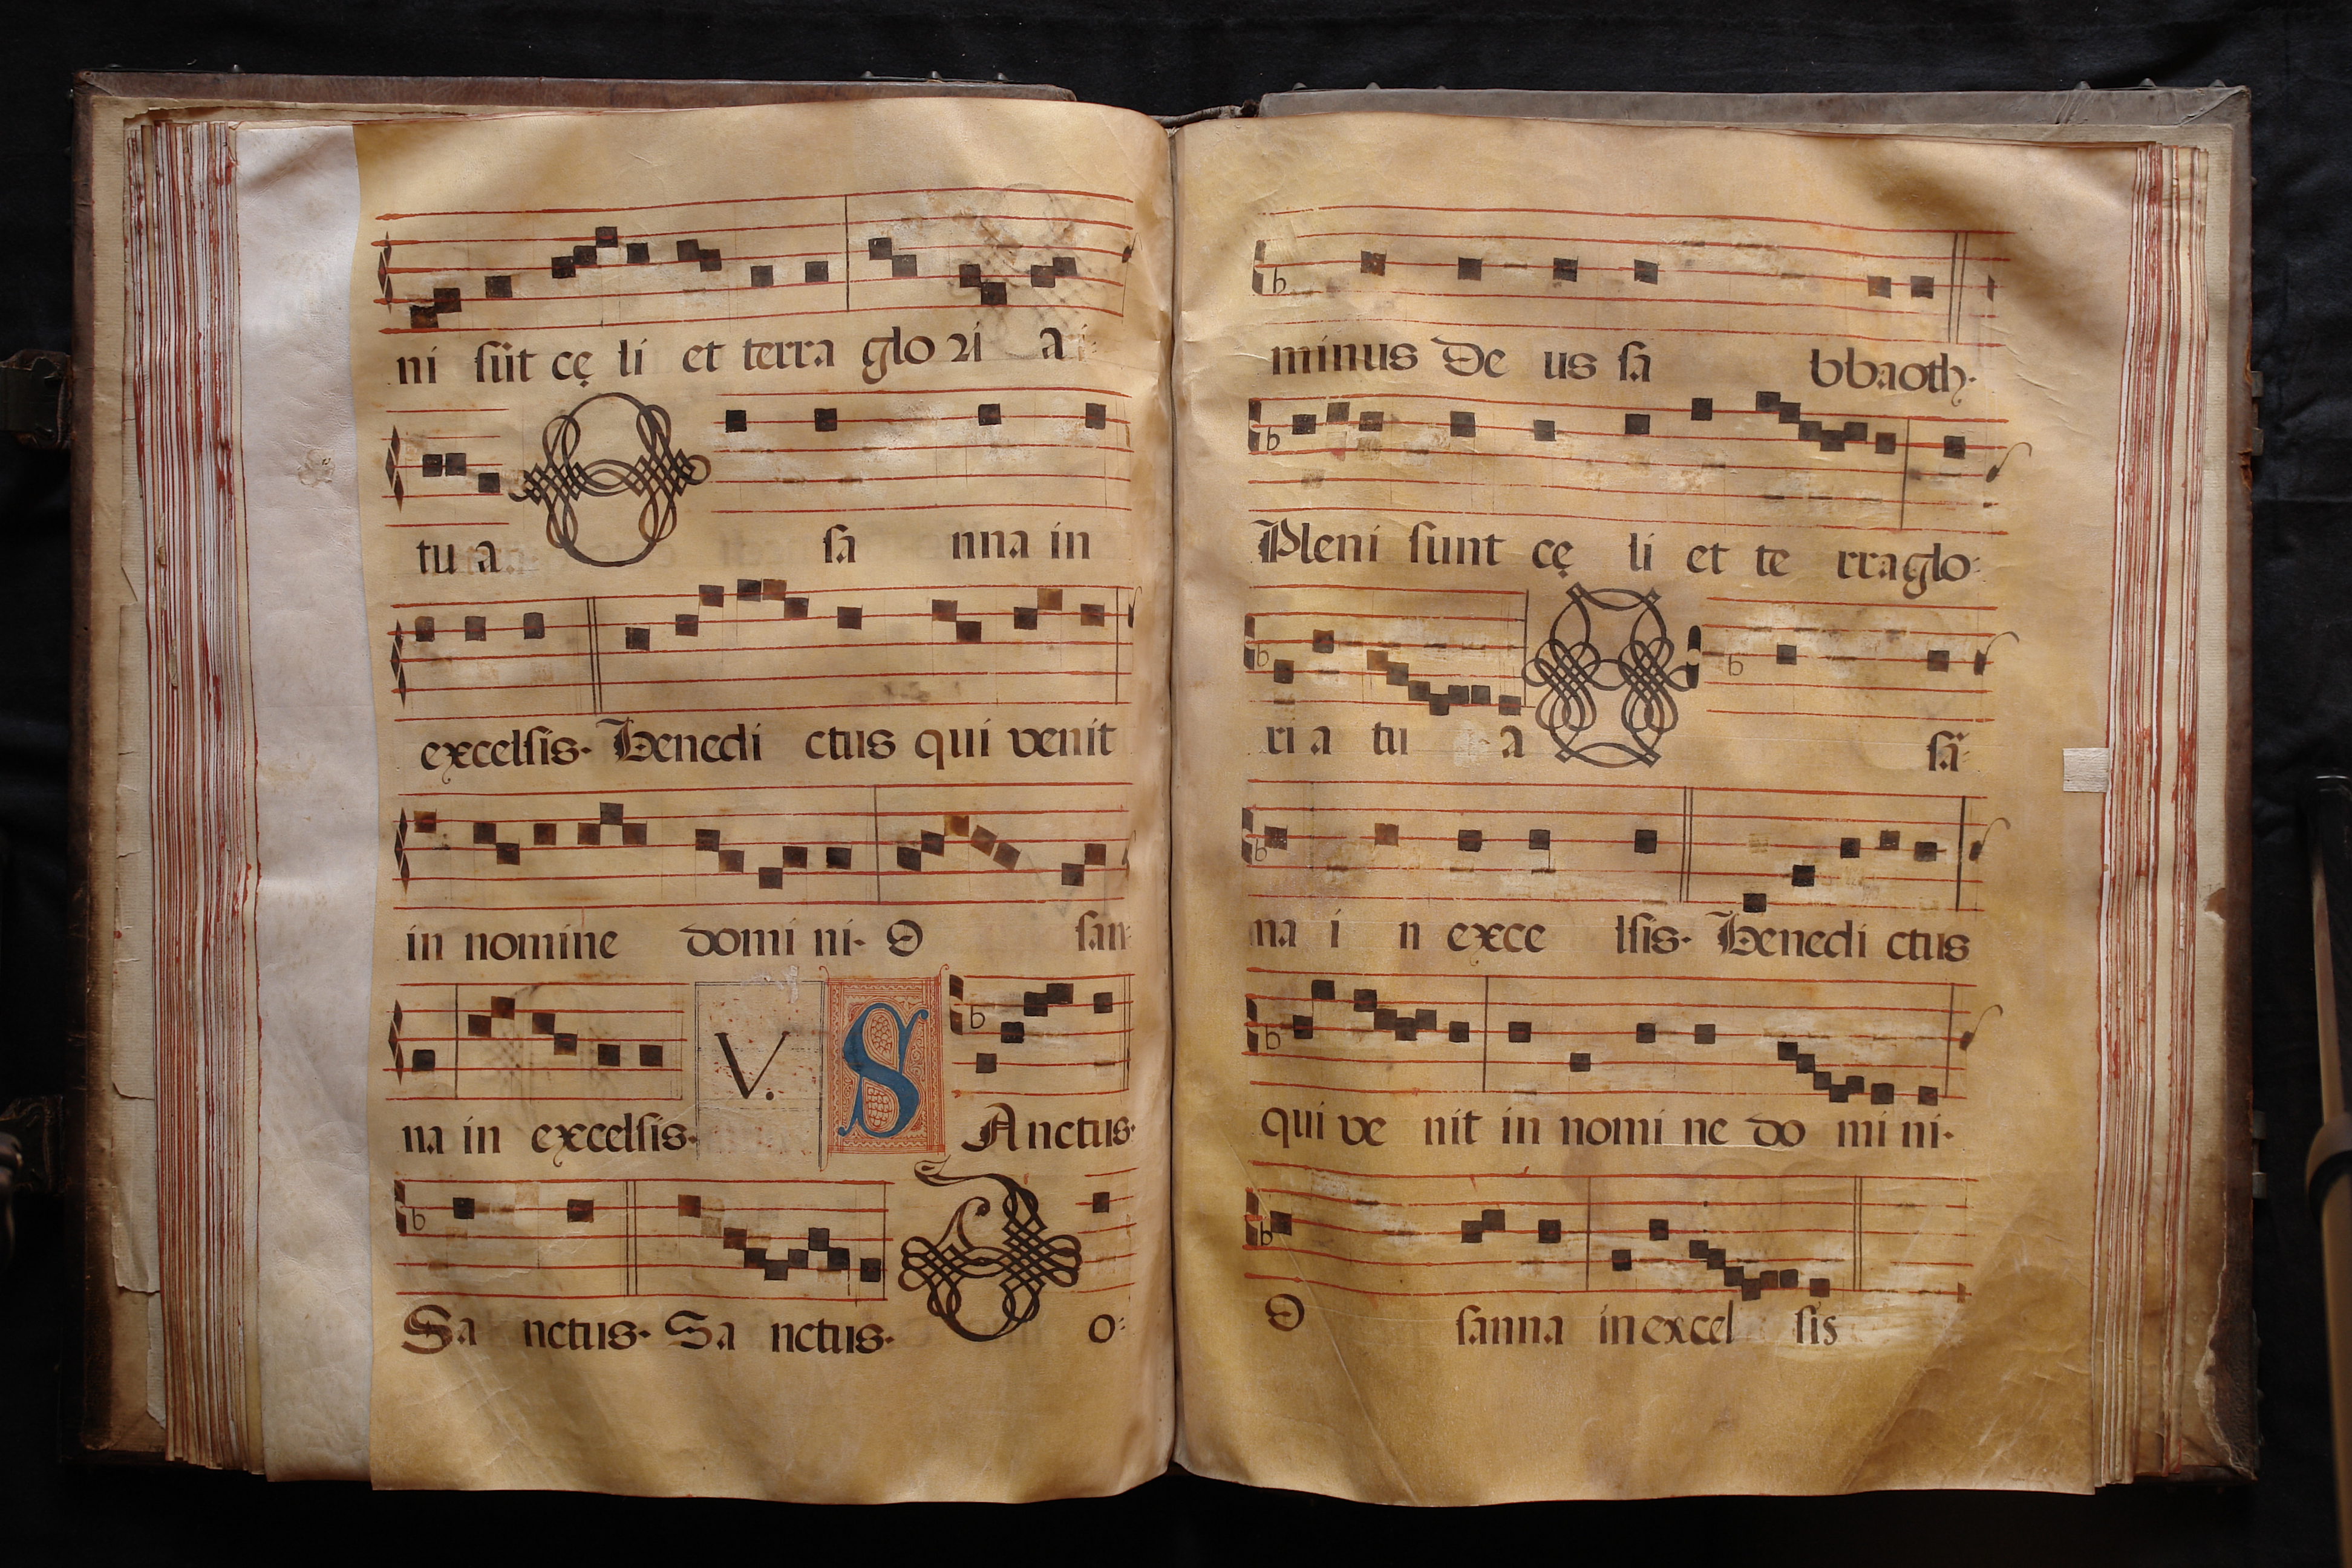 ni sūt cę li et terra glo ri a
tu a O sa nna in
excelsis. Benedi ctus qui venit
in nomine domi ni. O san
na in excelsis. V. S Anctus.
Sa nctus. Sa nctus. D o:
minus De us sa bbaoth.
Pleni sunt cę li et te rra glo:
ri a tu a O sā:
na i n exce lsis. Benedi ctus
qui ve nit in nomi ne do mi ni.
O sanna in excel sis